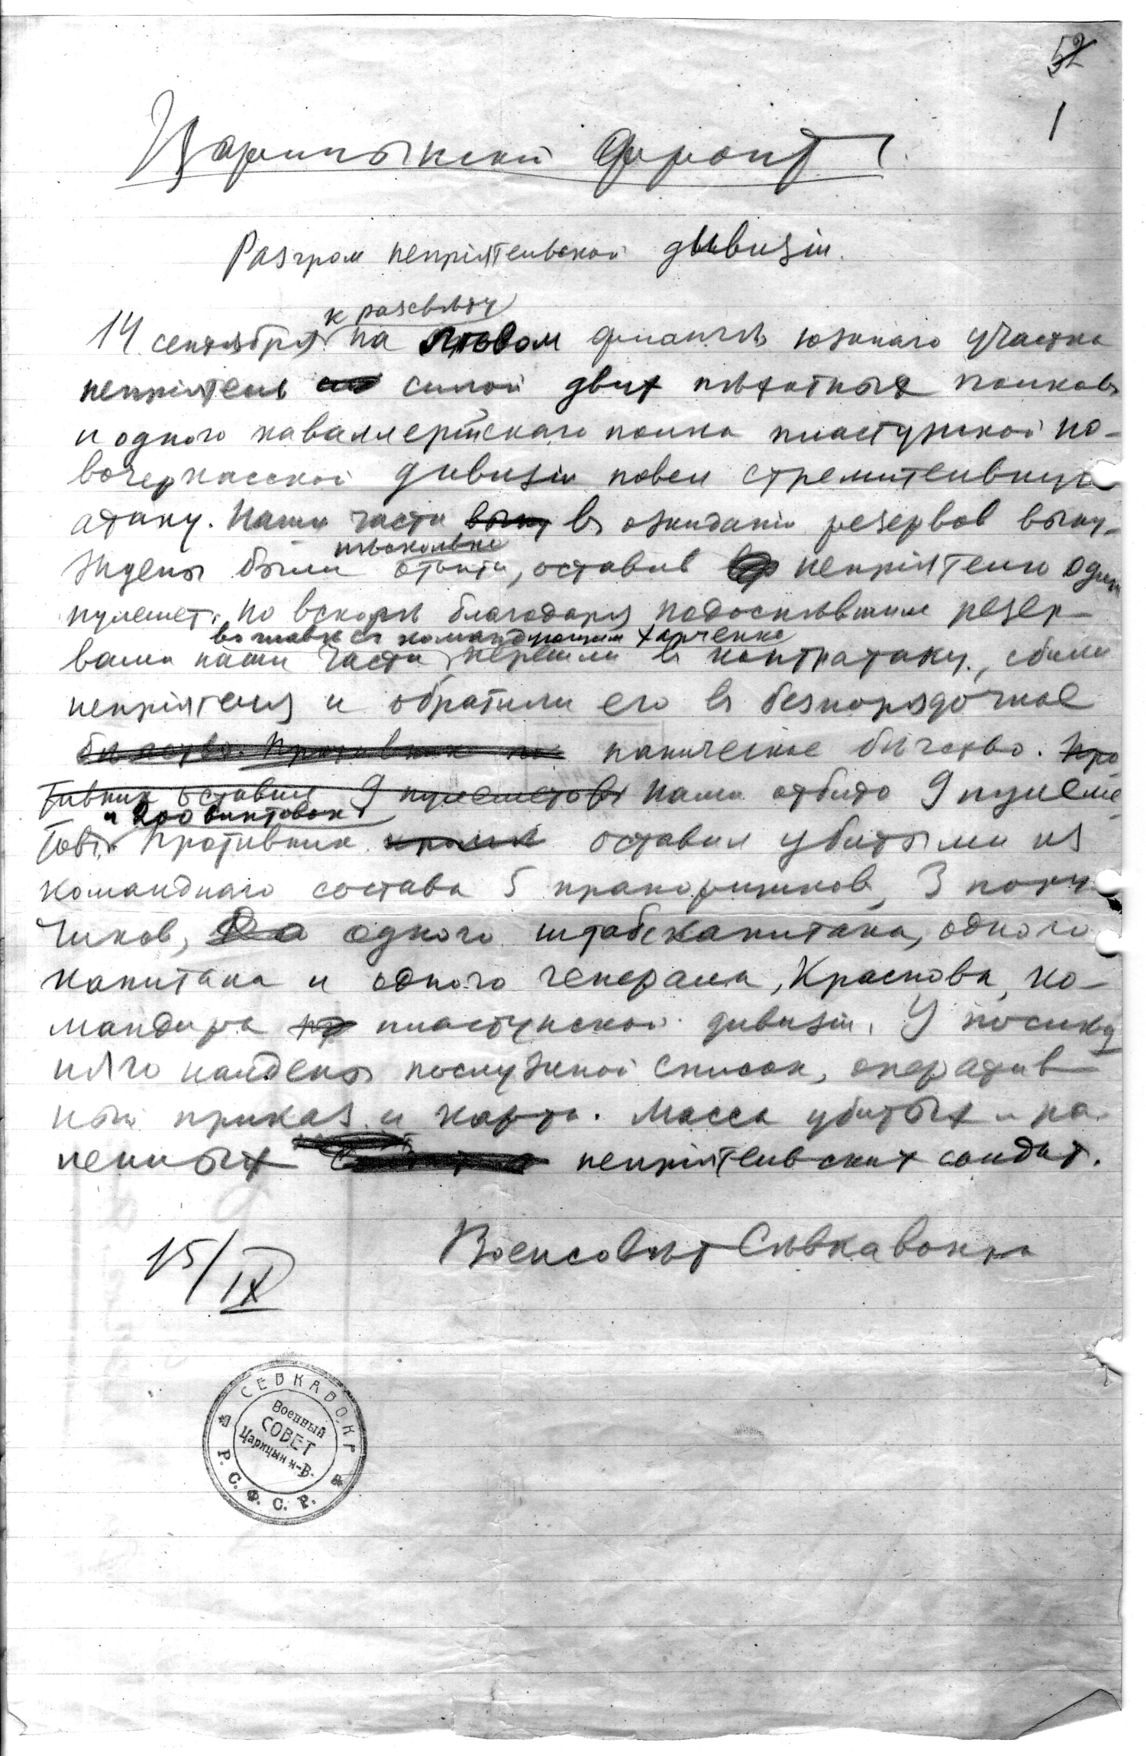 52
1
Царицынскій фронт.
Разгром непріятельской дивизіи.
к разсвѣту
14 сентября на лѣвом флангѣ южнаго участка
непріятель силой двух пѣхотных полков
и одного каваллерійскаго полка пластунской но-
вочеркасской дивизіи повел стремительную
атаку. Наши части въ ожиданіи резервов выну-
нѣсколько
ждены были отойти, оставив непріятелю один
пулемет. Но вскорѣ благодаря подоспѣвшим резер-
во главѣ съ командующим Харченко
вам наши части перешли в контратаку, сбили
непріятеля и обратили его в безпорядочное
бѣгство. Противник паническое бѣгство. Про-
тивник оставил 9 пулеметов Нами отбито 9 пулеме-
и 200 винтовок
тов. Противник оставил убитыми из
команднаго состава 5 прапорщиков, 3 пору-
чиков, одного штабскапитана, одного
капитана и одного генерала, Краснова, ко-
мандира пластунской дивизіи. У послѣд
няго найдены послужной список, оператив
ный приказ и карта. Масса убитых и ра-
ненных непріятельских солдат.
15/IX
Военсовѣт Сѣвкавокра
СЕВКАВО.КР.
Военный
СОВЕТ
Царицын н-В.
Р. С. Ф. С. Р.